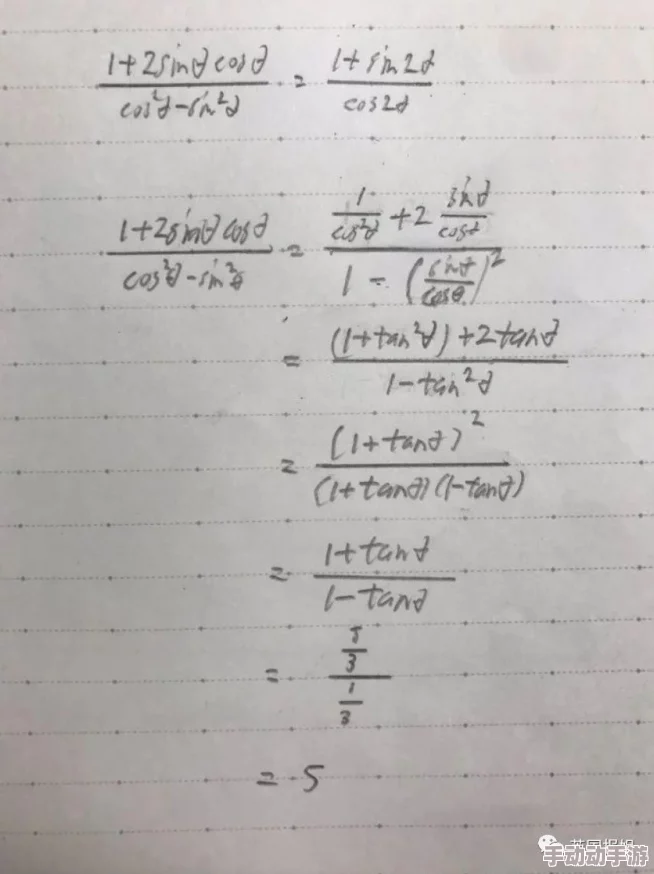 (1+2sinθcosθ)/(cos²θ-sin²θ) = (1+sin2θ)/(cos2θ)
(1+2sinθcosθ)/(cos²θ-sin²θ) = (1/cos²θ + 2 sinθ/cosθ)/(1-(sinθ/cosθ)²)
= ((1+tan²θ)+2tanθ)/(1-tan²θ)
= (1+tanθ)²/((1+tanθ)(1-tanθ))
= (1+tanθ)/(1-tanθ)
= (5/3)/(1/3)
= 5
手动动手游